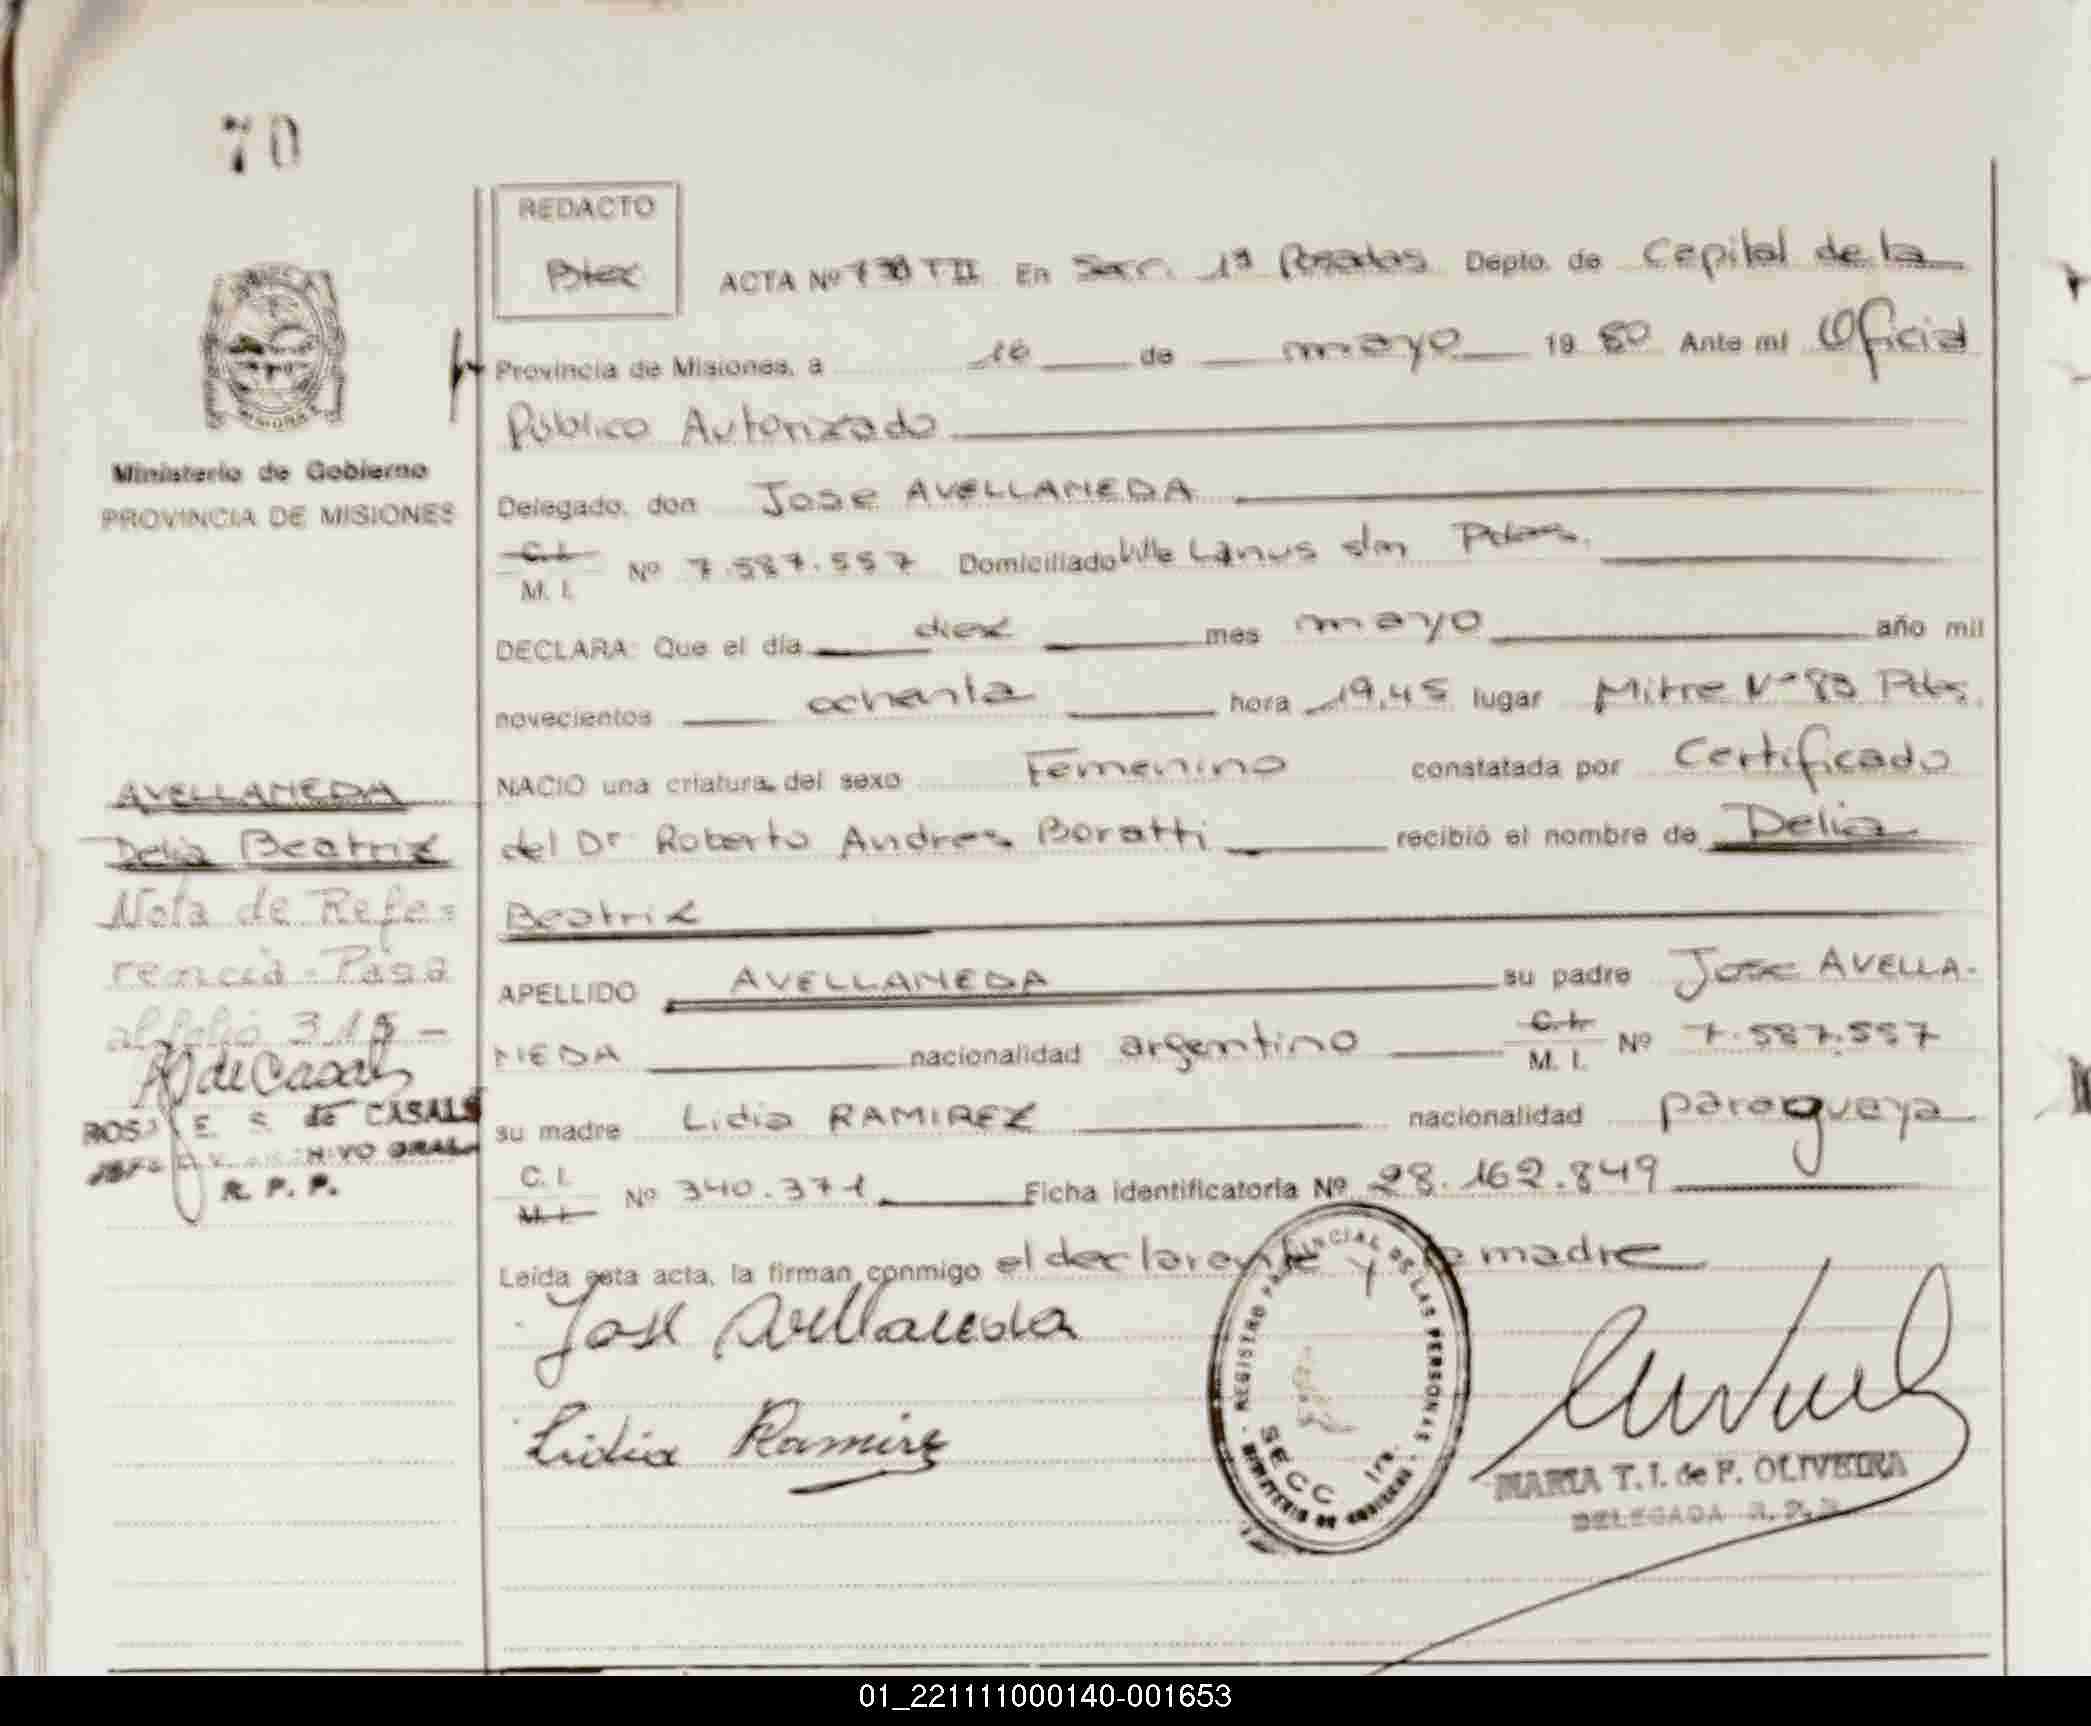 70
REDACTO
ACTA Nº TII En Secc. 1ª Posadas Depto. de Capital de la
Provincia de Misiones, a 16 de mayo 19 80 Ante mi Oficial
Público Autorizado
Ministerio de Gobierno
PROVINCIA DE MISIONES
Delegado, don Jose AVELLANEDA
C.I. M. I. Nº 7.587.557 Domiciliado Lanus s/n Pdas.
DECLARA: Que el día diez mes mayo año mil
novecientos ochenta hora 19,45 lugar Mitre Nº 83 Pdas.
NACIO una criatura del sexo Femenino constatada por Certificado
del Dr Roberto Andres Boratti recibió el nombre de Delia
Beatriz
APELLIDO AVELLANEDA su padre Jose AVELLA-
NEDA nacionalidad argentino C.I. M. I. Nº 7.587.557
su madre Lidia RAMIREZ nacionalidad paraguaya
C. I. M. I. Nº 340.371 Ficha identificatoria Nº 28.162.849
Leída esta acta, la firman conmigo el declarante y la madre
José Avellaneda
Lidia Ramirez
AVELLANEDA
Delia Beatriz
Nota de Refe=
rencia-Pasa
al folio 315 -
de Casals
E. S. de CASALS
R. P. P.
REGISTRO PROVINCIAL DE LAS PERSONAS
MINISTERIO DE GOBIERNO
SECC 1ra.
MARIA T. I. de F. OLIVEIRA
DELEGADA R. P. P.
01_221111000140-001653